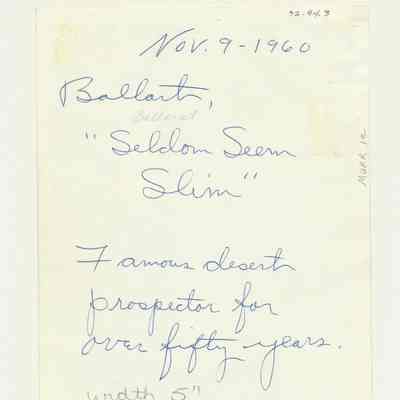 32.94.3
Nov. 9-1960
Ballart,
Ballarat
"Seldom Seem
Slim"
Famous desert
prospector for
over fifty years.
width 5"